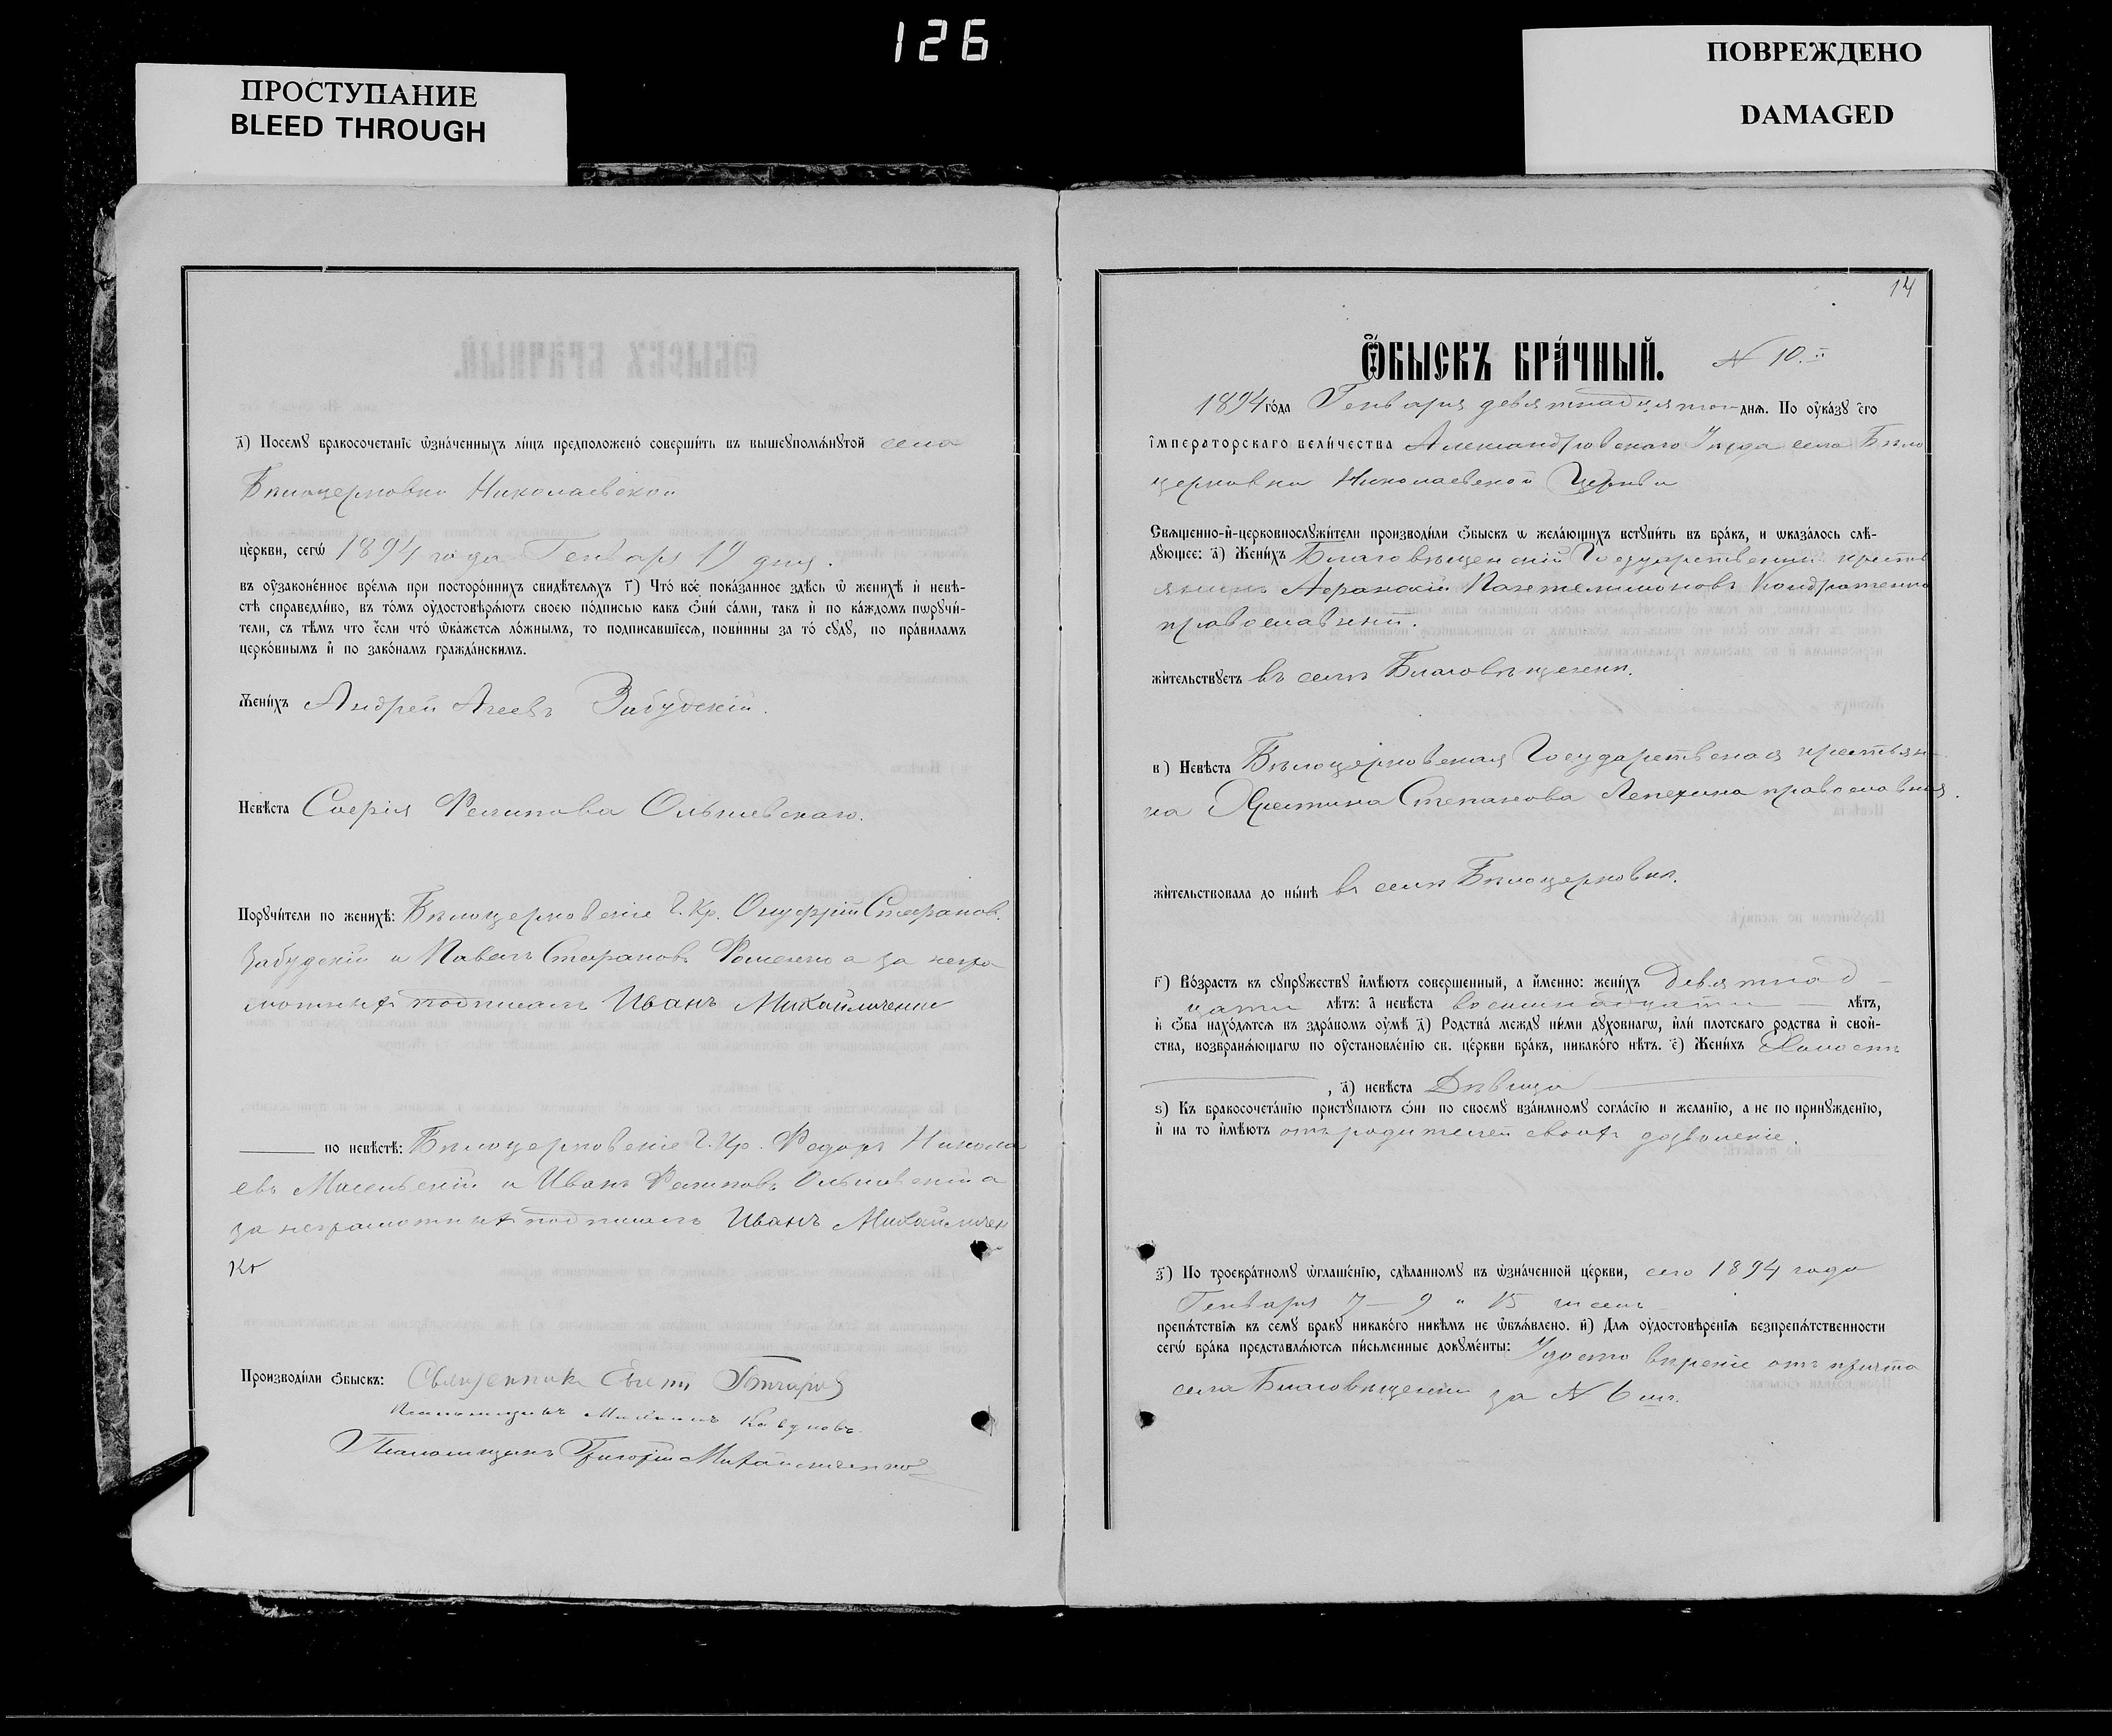 126
ПРОСТУПАНИЕ
BLEED THROUGH
ПОВРЕЖДЕНО
DAMAGED
д҃) Посемꙋ бракосочетанїе ѡзна́ченныхъ ли́цъ предположено́ соверши́ть въ вышеꙋпомѧ́нꙋтой села
Бѣлоцерковки Николаевской
це́ркви, сегѡ̀ 1894 года Генваря 19 дня.
въ оу҆зако́ненное вре́мѧ при посторо́ннихъ свидѣ́телѧхъ г҃) Что̀ все́ пока́занное здѣ́сь ѡ҆ женихѣ̀ и҆ невѣ́-
стѣ справедли́во, въ то́мъ оу҆достовѣрѧ́ютъ своею по́дписью какъ ѻ҆нѝ са́ми, такъ и҆ по ка́ждомъ порꙋчи́-
тели, съ тѣ́мъ что є҆́сли что̀ ѡ҆ка́жетсѧ ло́жнымъ, то подписавшїесѧ, пови́нны за то́ сꙋдꙋ̀, по пра́виламъ
церко́внымъ и҆ по зако́намъ гражда́нскимъ.
Жени́хъ Андрей Агеевъ Забудскій.
Невѣ́ста Софія Филипова Ольшевскаго.
Порꙋчи́тели по женихѣ̀: Бѣлоцерковскіе Г. Кр. Онуфрій Стефанов.
Забудскій и Павелъ Стефановъ Фоменко а за негра
мотныхъ подписалъ Иванъ Михайличенко
по невѣ́стѣ: Бѣлоцерковскіе Г. Кр. Федоръ Никола
евъ и Иванъ Филиповъ Ольшевскій а
за неграмотныхъ подписалъ Иванъ Михайличен
ко
Производи́ли ѻ҆́быскъ: Священникъ
Псаломщикъ
Псаломщикъ Григорій Михайличенко
14
Ѻ҆́быскъ бра́чный. N 10.й
1894 го́да Генваря девятнадцатого днѧ. По оу҆ка́зꙋ є҆гѡ̀
і҆мператорскаго вели́чества Александровскаго Уѣзда села Бѣло
церковки Николаевской Церкви
Свѧщенно-и҆-церковнослꙋжи́тели производи́ли ѻ҆́быскъ ѡ жела́ющихъ встꙋпи́ть въ бра́къ, и ѡказа́лось слѣ́-
дꙋющее: а҃) Жени́хъ Благовѣщенскій Государственный кресть
янинъ Афанасій Пантелимоновъ Кондратенко
православный.
жи́тельствꙋетъ въ селѣ Благовѣщенкѣ.
в҃) Невѣ́ста Бѣлоцерковская Государственная крестьян-
ка Христина Степанова Лепехина православная.
жи́тельствовала до ны́нѣ въ селѣ Бѣлоцерковкѣ.
г҃) Во́зрастъ къ сꙋпрꙋ́жествꙋ и҆мѣ́ютъ соверше́нный, а и҆́менно: жени́хъ Девятнад
цати лѣ́тъ: а҆ невѣ́ста восемнадцати лѣ́тъ,
и҆ ѻ҆́ба нахо́дѧтсѧ въ здра́вомъ оу҆мѣ̀ д҃) Родства̀ междꙋ ни́ми дꙋхо́внагѡ, и҆лѝ плотскаго родства и҆ свой-
ства, возбранѧ́ющагѡ по оу҆становле́нїю св. це́ркви бра́къ, никако́го нѣ́тъ. є҃) Жени́хъ Холостъ
, а҃) невѣ́ста Дѣвица
ѕ҃) Къ бракосочета́нїю пристꙋпа́ютъ ѻ҆нѝ по своемꙋ̀ взаи́мномꙋ согла́сїю и жела́нїю, а не по принꙋжде́нїю,
и҆ на то и҆мѣ́ютъ отъ родителей своихъ дозволеніе.
з҃) По троекра́тномꙋ ѡ҆глаше́нїю, сдѣ́ланномꙋ въ ѡ҆зна́ченной це́ркви, сего 1894 года
Генваря 7 – 9 и 15 чиселъ
препѧ́тствїѧ къ семꙋ̀ бракꙋ никако́го никѣ́мъ не ѡ҆бъѧ́влено. и҃) Длѧ оу҆достовѣре́нїѧ безпрепѧ́тственности
сегѡ̀ бра́ка представлѧ́ютсѧ пи́сьменные докꙋме́нты: Удостовѣреніе отъ причта
села Благовѣщенки за N 6 мъ.